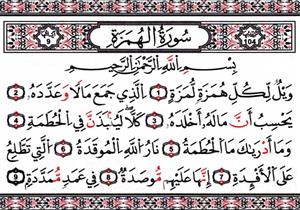 104 سُورَةُ الْهُمَزَةِ 9
بِسْمِ اللَّهِ الرَّحْمَٰنِ الرَّحِيمِ
وَيْلٌ لِّكُلِّ هُمَزَةٍ لُّمَزَةٍ 1 الَّذِي جَمَعَ مَالًا وَعَدَّدَهُ 2
يَحْسِبُ أَنَّ مَالَهُ أَخْلَدَهُ 3 كَلَّا لَيُنۢبَذَنَّ فِي الْحُطَمَةِ 4
وَمَا أَدْرَىٰكَ مَا الْحُطَمَةُ 5 نَارُ اللَّهِ الْمُوقَدَةُ 6 الَّتِي تَطَّلِعُ
عَلَى الْأَفْئِدَةِ 7 إِنَّهَا عَلَيْهِم مُّوصَدَةٌ 8 فِي عَمَدٍ مُّمَدَّدَةٍ 9